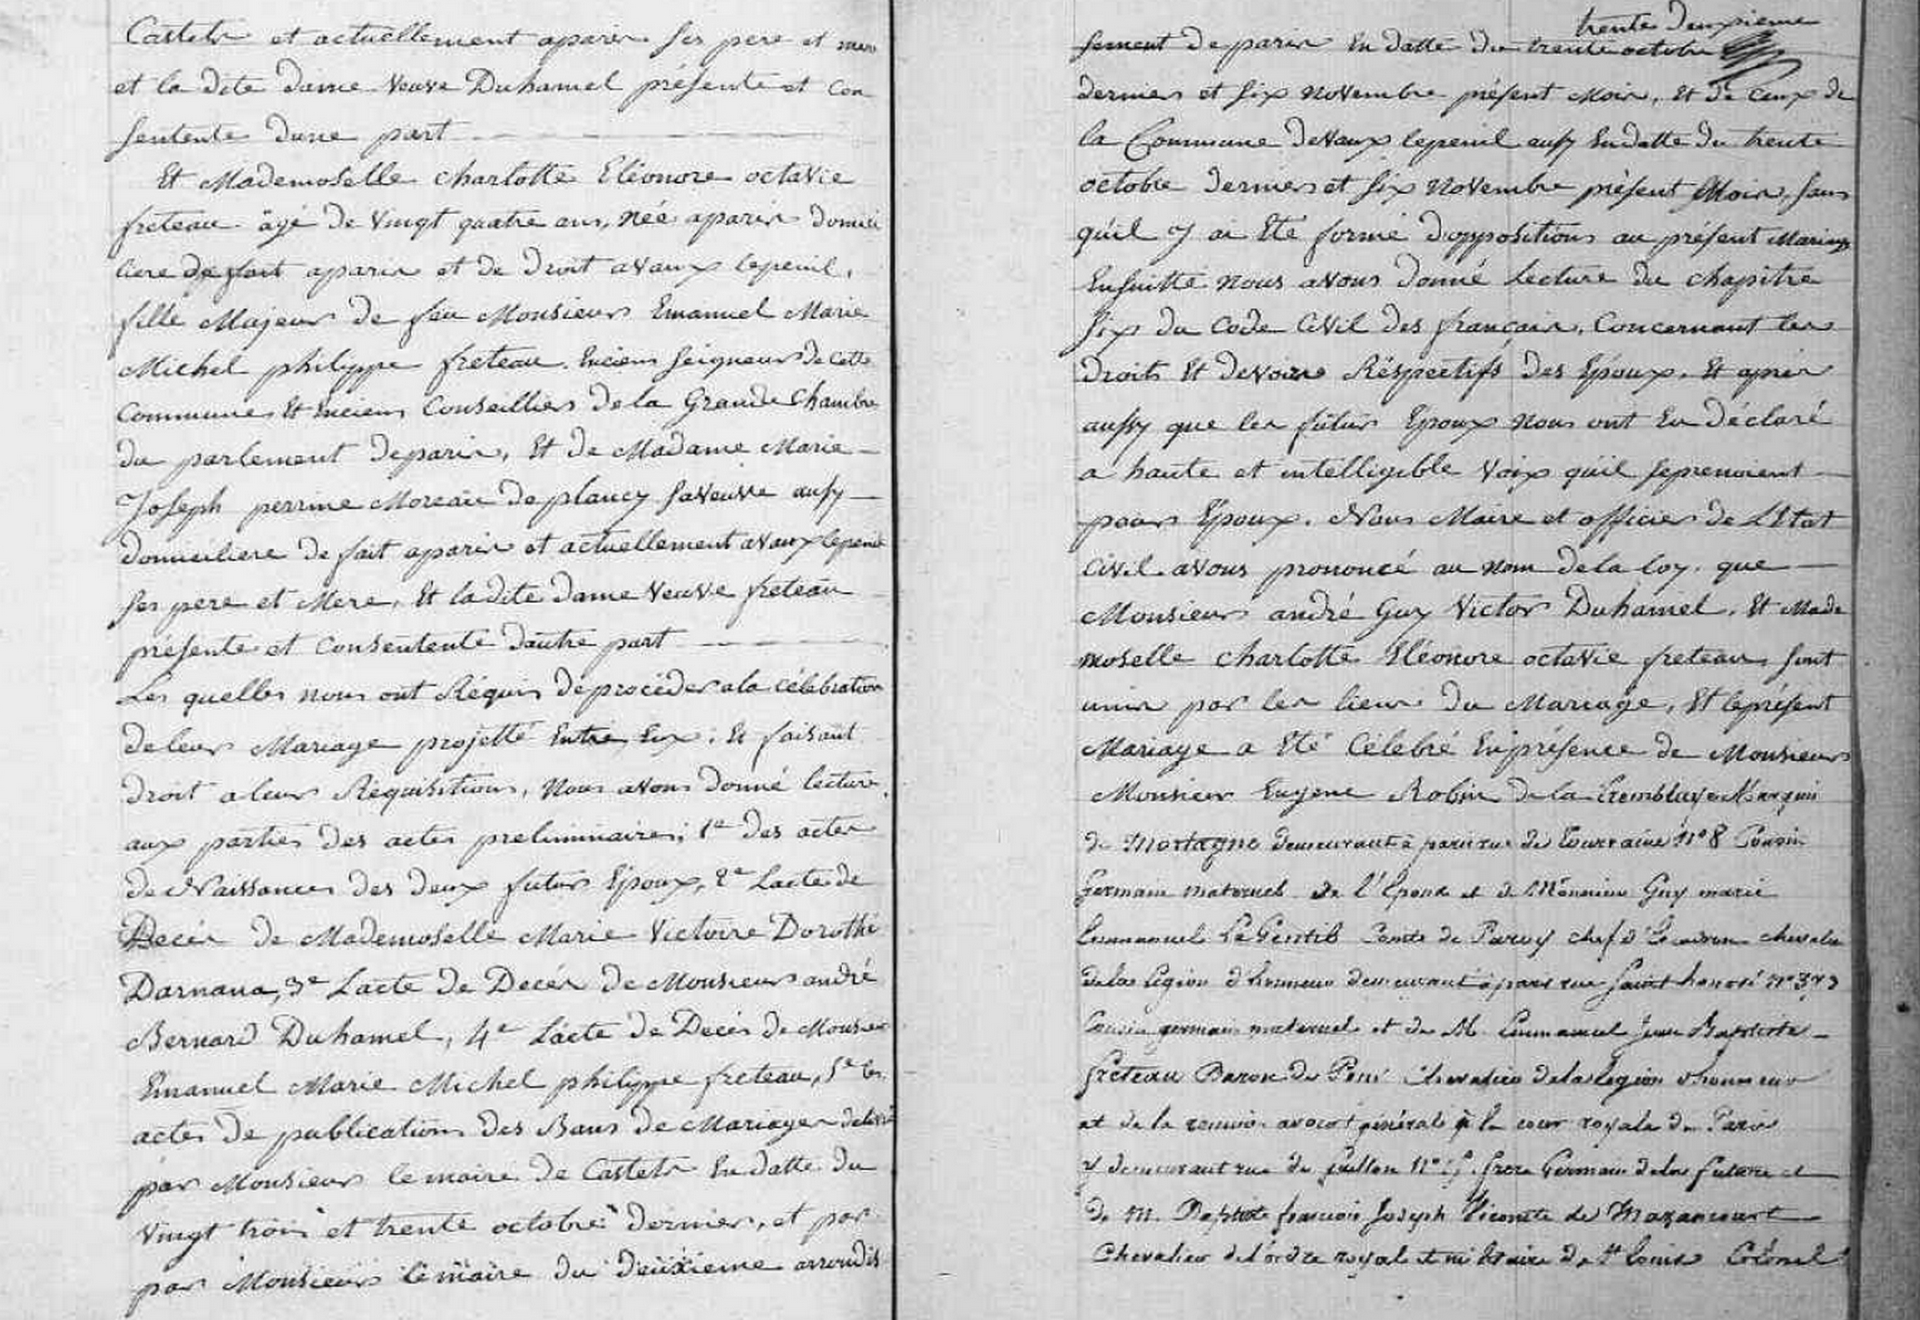 Castets et actuellement aparis ses pere et mere
et la dite dame veuve Duhamel présente et con
sentente dune part
Et Mademoselle charlotte Eléonore octavie
freteau âgé de vingt quatre ans, née aparis domici
liere de fait aparis et de droit avaux lepenil,
fille Majeur de feu Monsieur Emanuel Marie
Michel philippe freteau, Encien seigneur de cette
Commune Et Encien Conseillier de la Grande Chambre
du parlement deparis, Et de Madame Marie
Joseph perrine Moreau de plancy saveuve aussy
domiciliere de fait aparis et actuellement avaux lepenil
ses pere et Mere, Et ladite dame veuve freteau
présente et Consentente dautre part
Les quelles nous ont Réquis deprocéder ala célébration
deleur Mariage projetté Entre Eux; Et faisant
droit aleur Réquisition, Nous avons donné lecture
aux parties des actes preliminaires; 1e des actes
de Naissances des deux futur Epoux, 2e Lacte de
Decés de Mademoselle Marie Victoire Dorothé
Darnana, 3e Lacte de Decés de Monsieur andré
Bernard Duhamel, 4e Lacte de Decés de Monsieur
Emanuel Marie Michel philippe freteau, 5e les
actes de publications des Bans de Mariages delivré
par Monsieur lemaire de Castets En datte du
vingt trois et trente octobre dernier, et par
par Monsieur lemaire du deuxieme arrondis
trente deuxieme
sement de paris En datte du trente octobre
dernier et six novembre présent Mois, Et de Ceux de
la Commune devaux lepenil aussy En datte du trente
octobre dernier et six Novembre présent Mois, sans
quil y ai Eté formé doppositions au présent Mariage
Ensuitte nous avons donné Lecture du chapitre
six du Code Civil des français, Concernant les
droits Et devoirs Réspectifs des Epoux, Et après
aussy que les futurs Epoux nous ont En déclaré
a haute et intelligible voix quil seprenoient
pour Epoux. Nous Maire et officier de LEtat
Civil avons prononcé au nom dela loy, que
Monsieur andré Guy Victor Duhamel, Et Made
moselle charlotte Eléonore octavie freteau sont
unis par les liens du Mariage, Et leprésent
Mariage a Eté Célébré Enprésence de Monsieur
Monsieur Eugene Robin de la Tremblaye Marquis
de Mortagne demeurant à paris rue de Tourraine N° 8 Cousin
Germain maternel de l'Epoux et de Monsieur Guy marie
Emmanuel Le Gentil Comte de Paroy chef d'Escadron chevalier
dela légion d'honneur demeurant à paris rue Saint honoré n°
Cousin germain maternel et de M. Emmanuel Jean Baptiste
freteau Baron de Peni Chevalier dela légion d'honneur
et de la reunion avocat général à la cour royale de Paris
y demeurant rue de Gaillon N° frere Germain dela future et
de M. Baptiste françois Joseph Vicomte de Mazancourt
Chevalier del'ordre royal et militaire de St Louis Colonel